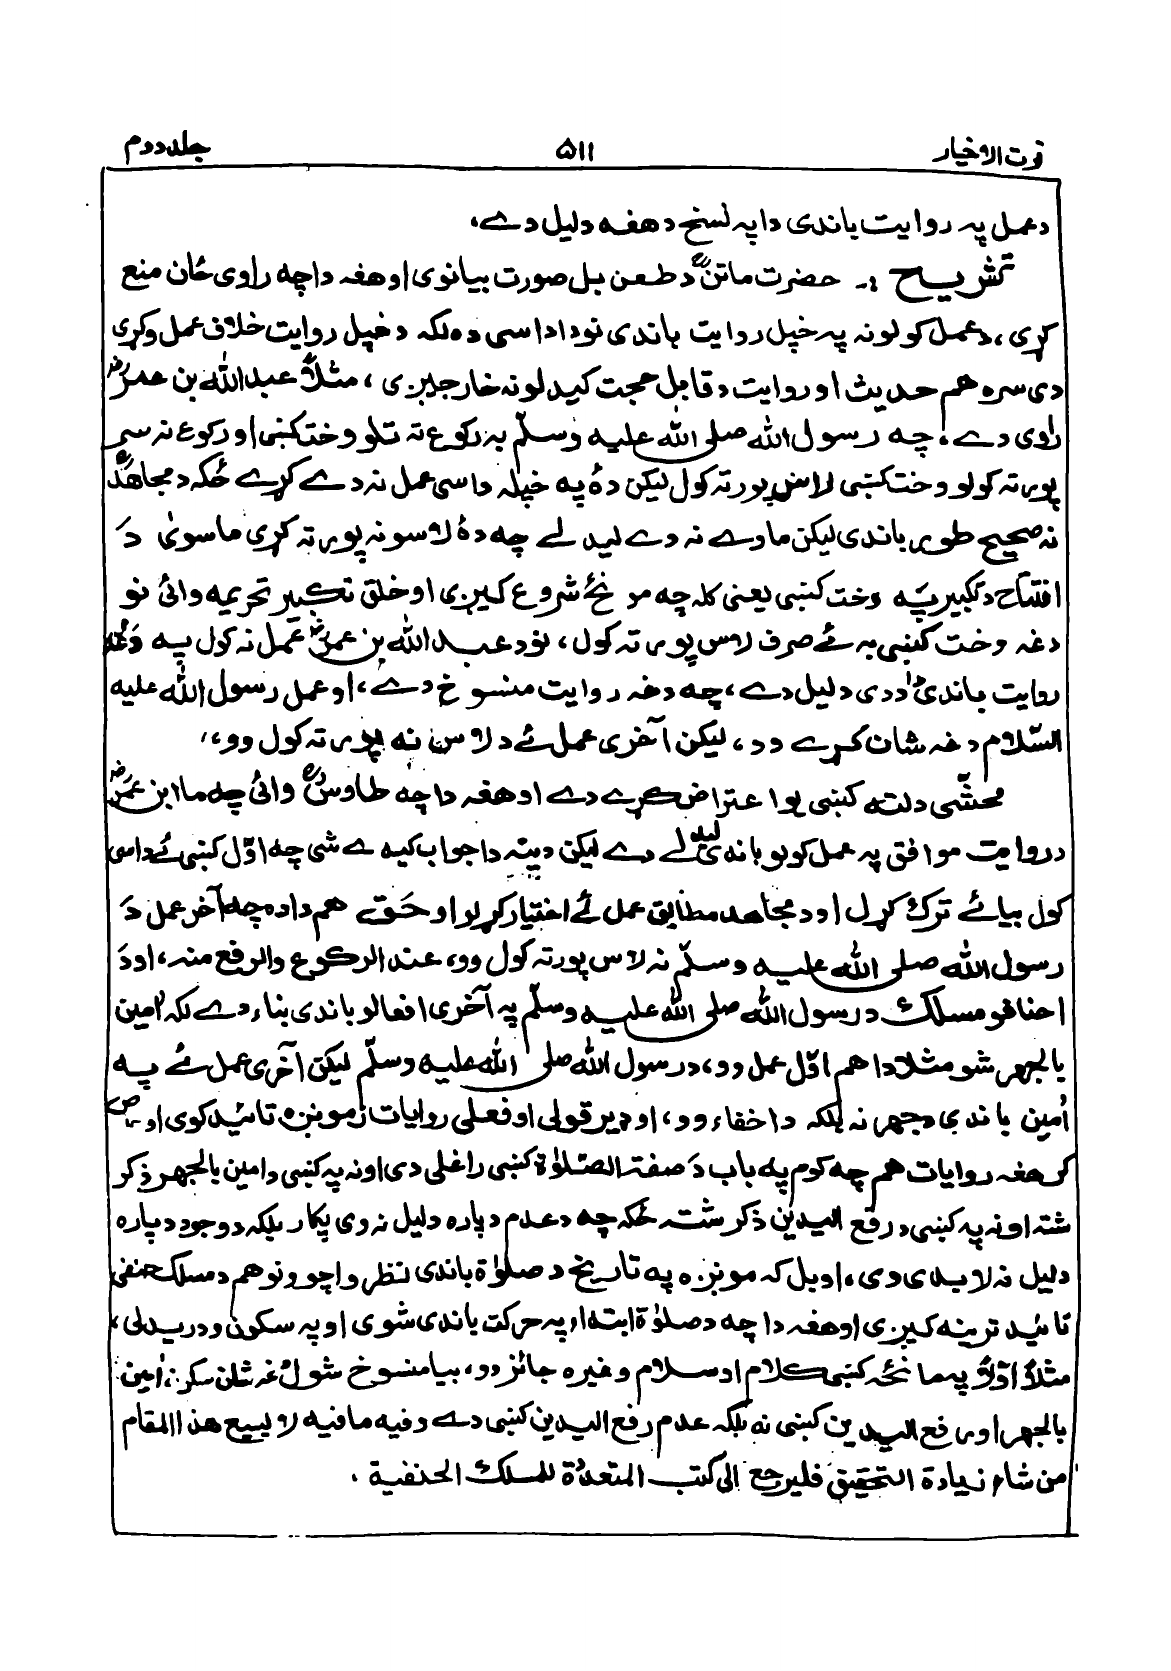 قوت الاخيار ۵۱۱ جلد دوم
دعمل په روايت باندی دا په نسخ دهغه دليل دے،
تشريح :. حضرت ماتنؒ دطعن بل صورت بيانوی اوهغه داچه راوی ځان منع
کړی، دعمل کولو نه په خپل روايت باندی نودا داسی ده لکه دخپل روايت خلاف عمل وکړی
دی سره هم حديث او روايت دقابل حجت کيدلو نه خارجيږی، مثلاً عبدالله بن عمرؓ
راوی دے، چه رسول الله صلی الله عليه وسلّم به رکوع ته تلو وخت کښی او رکوع نه سر
پورته کولو وخت کښی لاس پورته کول ليکن دهٔ په خپله داسی عمل نه دے کړے ځکه دمجاهدؒ
نه صحيح طور باندی ليکن مادے نه دے ليدلے چه دهٔ لاسونه پورته کړی ماسویٰ دَ
افتتاح دتکبير په وخت کښی يعنی کله چه مونځ شروع کيږی اوخلق تکبير تحريمه وائی نو
دغه وخت کښی به ئے صرف لاس پورته کول، نود عبد الله بن عمرؓ عمل نه کول په دغه
روايت باندی ددی دليل دے، چه دغه روايت منسوخ دے، اوعمل رسول الله عليه
السّلام دغه شان کړے وو، ليکن آخری عمل ئے دلاس نه پورته کول وو،
محشّی دلته کښی يو اعتراض کړے دے اوهغه داچه طاوسؒ وائی چه ما ابن عمرؓ
دروايت موافق په عمل کولو باندی ليدلے دے ليکن ديته داجواب کيدے شی چه اوّل کښی ئے داسی
کول بيائے ترک کړل اود مجاهد مطابق عمل ئے اختيار کړو او حق هم داده چه آخر عمل دَ
رسول الله صلی الله عليه وسلّم نه لاس پورته کول وو، عند الرکوع والرفع منه، اودَ
احنافو مسلک درسول الله صلی الله عليه وسلّم په آخری افعالو باندی بناء دے لکه اٰمين
بالجهر شو مثلاً داهم اوّل عمل وو، درسول الله صلی الله عليه وسلّم ليکن آخری عمل ئے په
اٰمين باندی دجهر نه بلکه داخفاء وو، اوډير قولی اوفعلی روايات زمونږه تائيد کوی او
کر هغه روايات هم چه کوم په باب دَ صفة الصّلوٰة کښی راغلی دی اونه په کښی دامين بالجهر ذکر
شته اونه په کښی درفع اليدين ذکر شته ځکه چه دعدم دپاره دليل نه وی پکار بلکه دوجود دپاره
دليل نه لابدی وی، اوبل که مونږه په تاريخ دصلوٰة باندی نظر واچوو نوهم دمسلک حنفی
تائيد ترينه کيږی اوهغه داچه دصلوٰة ابتداء په حرکت باندی شوی اوپه سکون ودريدلی،
مثلاً اوّلاً په مانځه کښی کلام اوسلام وغيره جائز وو، بيا منسوخ شول دغه شان سکون اٰمين
بالجهر اورفع اليدين کښی نه بلکه عدم رفع اليدين کښی دے وفيه مافيه لا يسيع هذا المقام
من شاء زيادة التحقيق فليرجع الی کتب المتعدّدة للمسلک الحنفية ،